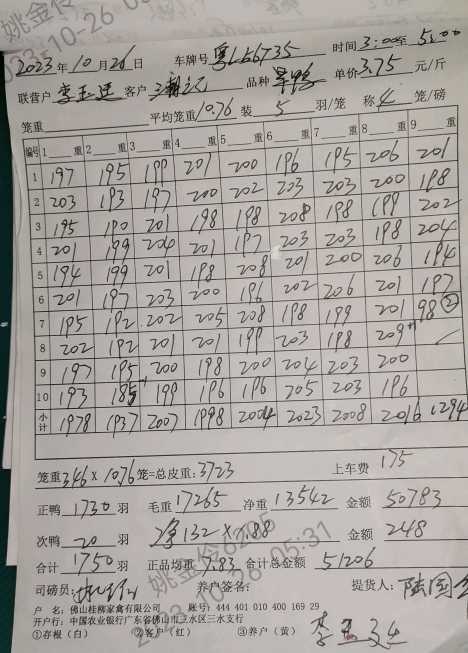 2023年10月26日 车牌号 粤L66735 时间 3:00至5:00
联营户 客户 品种 单价3.75元/斤
笼重 平均笼重10.76 装5羽/笼 称4笼/磅
编号 1重 2重 3重 4重 5重 6重 7重 8重 9重
1 197 195 199 201 200 196 195 206 201
2 203 193 197 200 202 203 203 200 198
3 195 190 201 198 198 208 198 199 202
4 201 199 204 201 197 203 203 198 204
5 194 199 201 198 208 201 200 206 194
6 201 197 203 200 196 202 206 201 197
7 195 192 202 205 208 198 199 201 98②
8 202 192 201 201 199 203 198 209
9 197 195 200 198 200 204 203 200
10 193 185 199 196 196 205 203 196
小计 1978 1937 2007 1998 2004 2023 2008 2016 1294
笼重346×10.76笼=总皮重:3723 上车费 175
正鸭1730羽 毛重17265 净重13542 金额50783
次鸭20羽 净132×1.88 金额248
合计1750羽 正品均重7.83 合计总金额51206
司磅员: 养户签名: 提货人:
户 名:佛山桂柳家禽有限公司 账号:444 401 010 400 169 29
开户行:中国农业银行广东省佛山市三水区三水支行
①存根(白) ②客户(红) ③养户(黄)